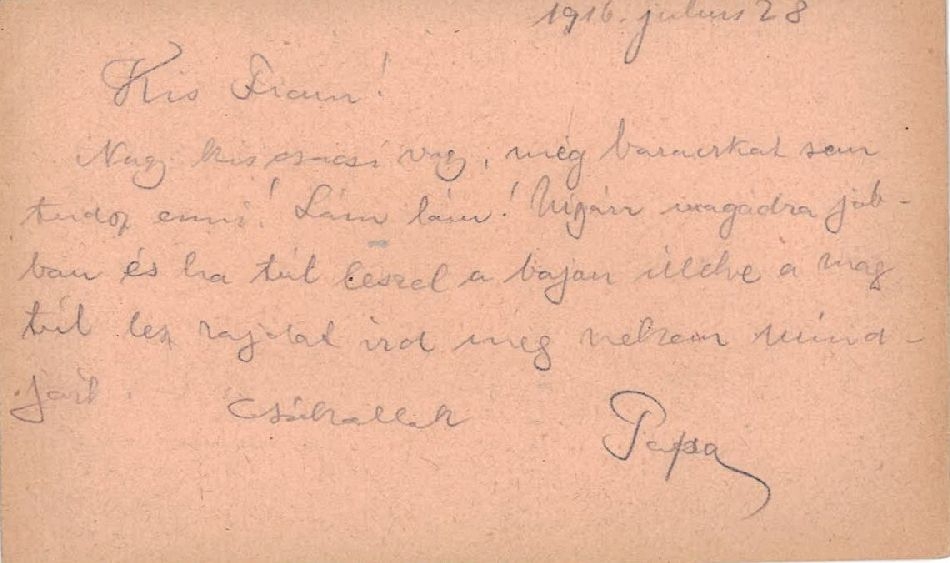 1916. julius 28
Kis Fiam!
Nagy kis csacsi vagy, még barackot sem
tudoz enni! Lám lám! magadra job-
ban és ha túl leszel a bajon illetve a mag
túl lesz rajtat ird meg nekem mind-
járt. Csókollak
Papa